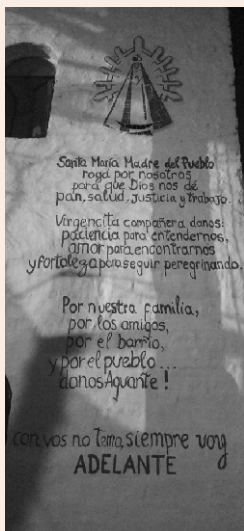 Santa María Madre del Pueblo
rogá por nosotros
para que Dios nos dé
pan, salud, justicia y trabajo.
Virgencita compañera danos:
paciencia para entendernos,
amor para encontrarnos
y fortaleza para seguir peregrinando.
Por nuestra familia,
por los amigos,
por el barrio,
y por el pueblo...
danos Aguante!
con vos no temo, siempre voy
ADELANTE